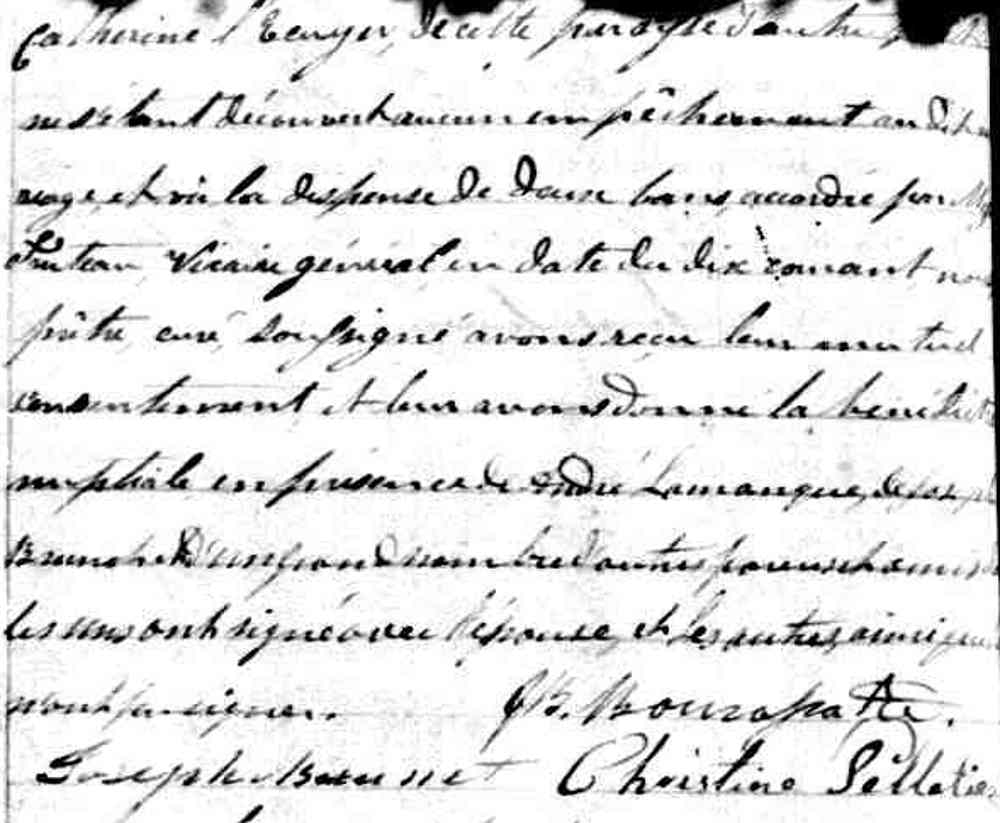 Catherine l'Ecuyer, de cette paroisse d'autre part
ne s'étant découvert aucun empêchement au dit ma
riage, et vû la dispense de deux bans accordée par Mgr
Truteau Vicaire général en date du dix courant nous
prêtre curé soussigné avons reçu leur mutuel
consentement et leur avons donné la bénédict
nuptiale en présence de André Lamarque, de Joseph
Brunet et d'un grand nombre d'autres parens et amis
les uns ont signé avec l'épouse, et les autres ainsi que
n'ont pu signer.
JB. Bourassa Ptre.
Joseph Brunet Christine Pelletier